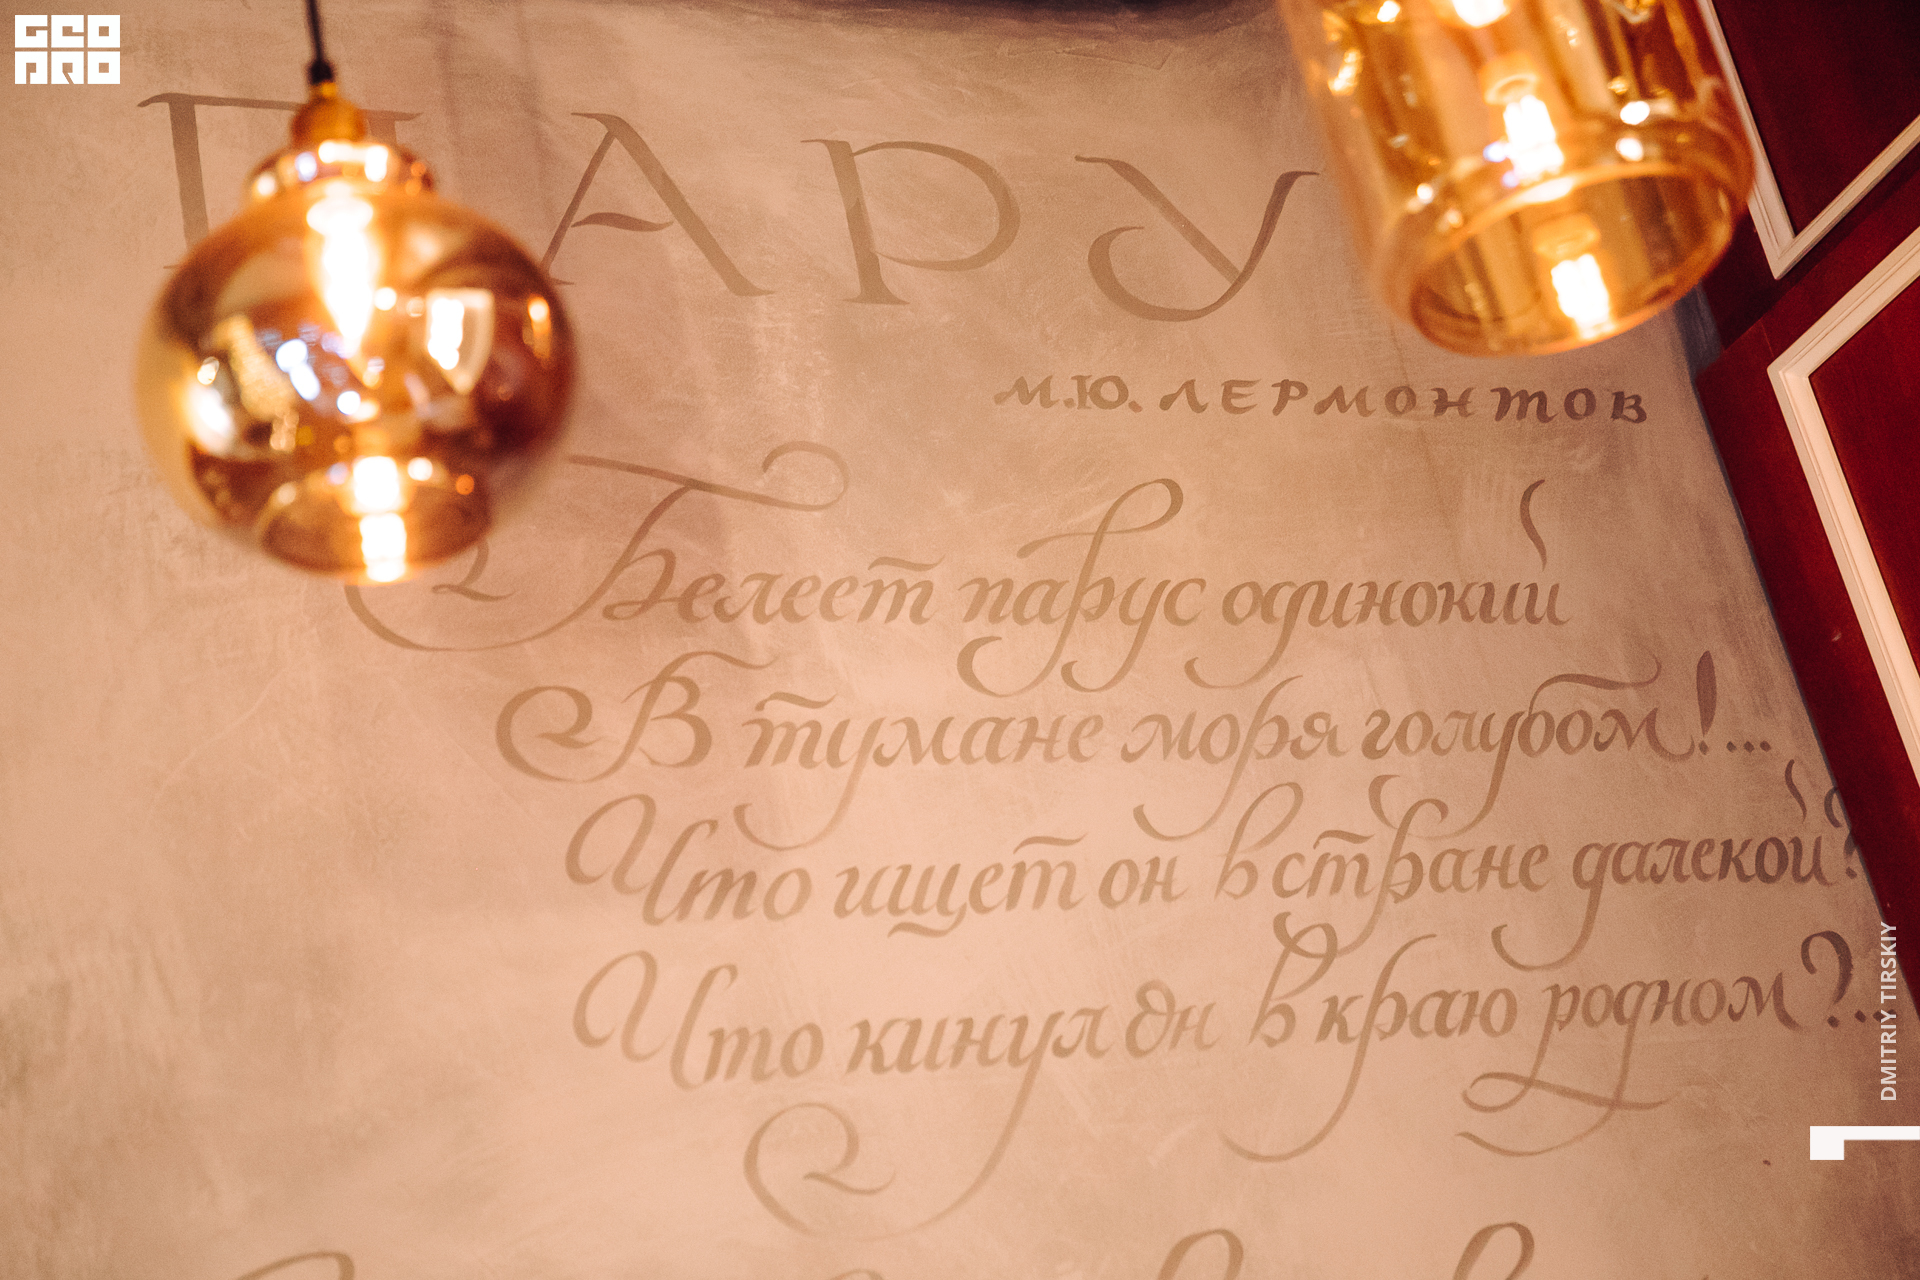 GEO
PRO
ПАРУ
М.Ю. ЛЕРМОНТОВ
Белеет парус одинокий
В тумане моря голубом!...
Что ищет он в стране далекой?
Что кинул он в краю родном?..
DMITRIY TIRSKIY